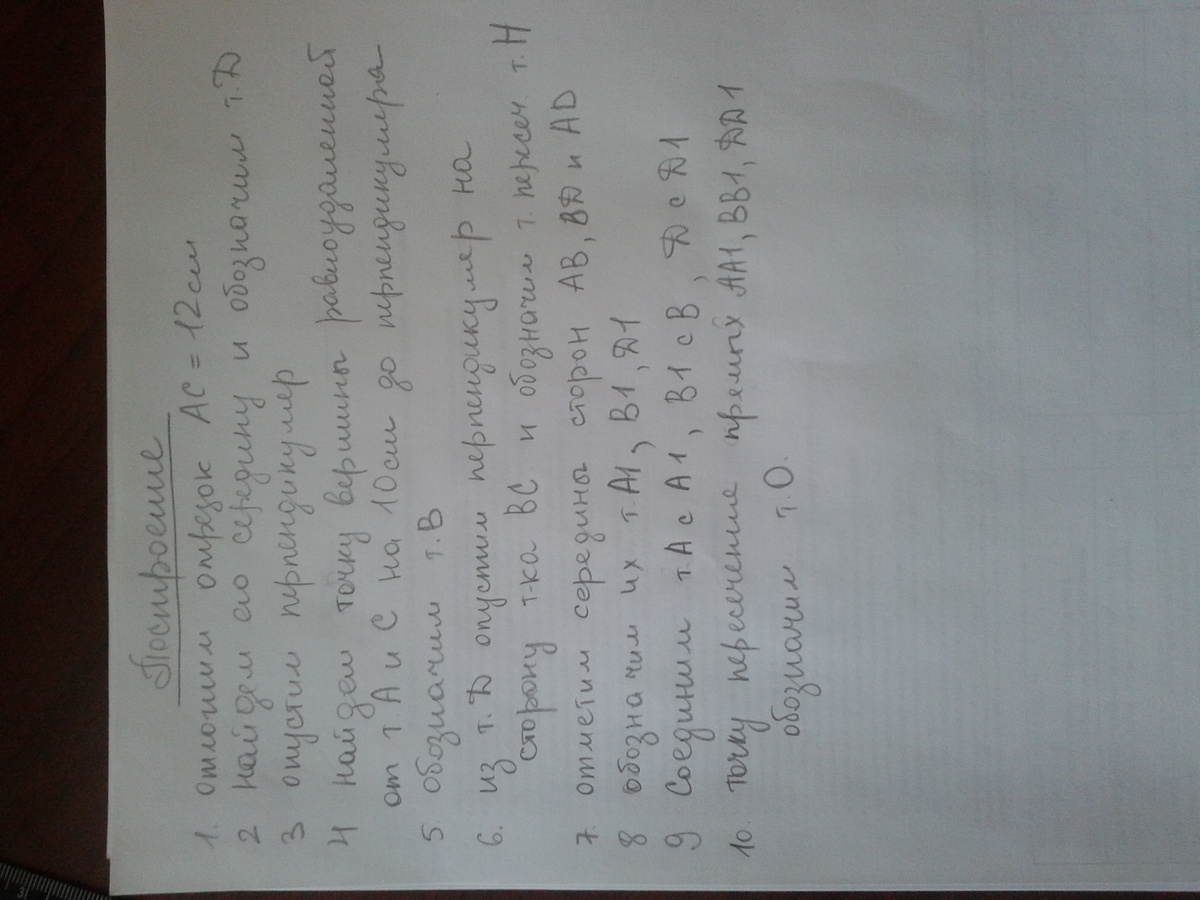 Построение
1. отложим отрезок АС = 12см
2 найдем его середину и обозначим т.D
3 опустим перпендикуляр
4 найдем точку вершины равноудаленной
от т А и С на 10см до перпендикуляра
5 обозначим т.В
6. из т. D опустим перпендикуляр на
сторону т-ка ВС и обозначим т. пересеч. т. Н
7. отметим середины сторон АВ, ВD и AD
8 обозначим их т.А1, В1, D1
9 Соединим т.А с А1, В1 с В, D с D1
10. точку пересечение прямых АА1, ВВ1, DD1
обозначим т.О.